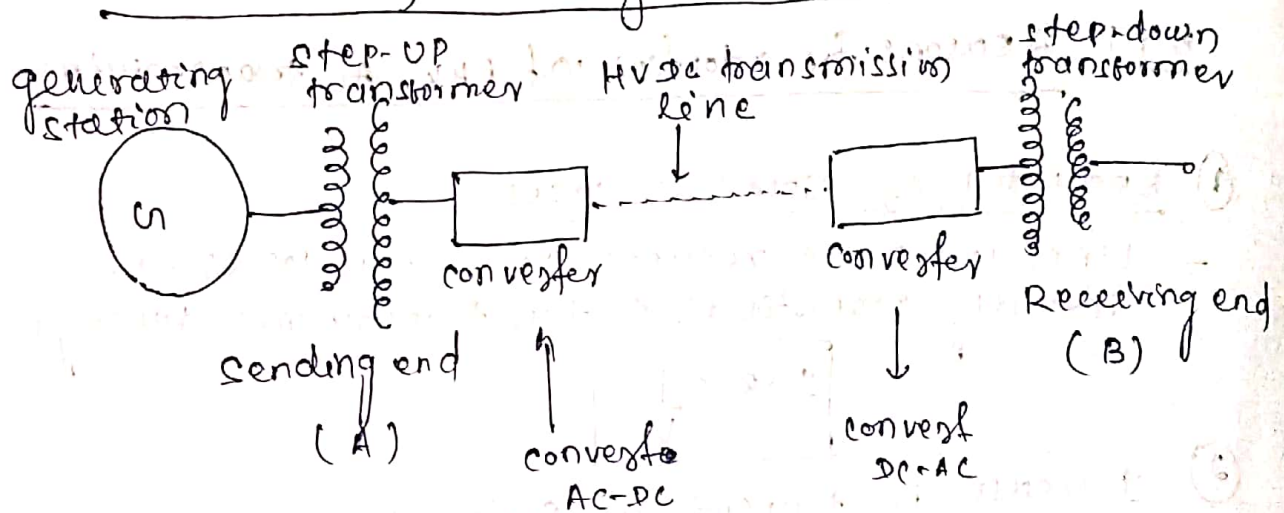 generating
station
step-UP
transformer
HVDC transmission
line
step-down
transformer
S
converter
converter
Sending end
(A)
Receeiving end
(B)
converte
AC-DC
convert
DC-AC